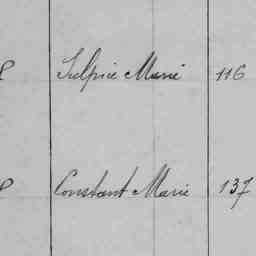 Sulpice Marie 116
Constant Marie 137